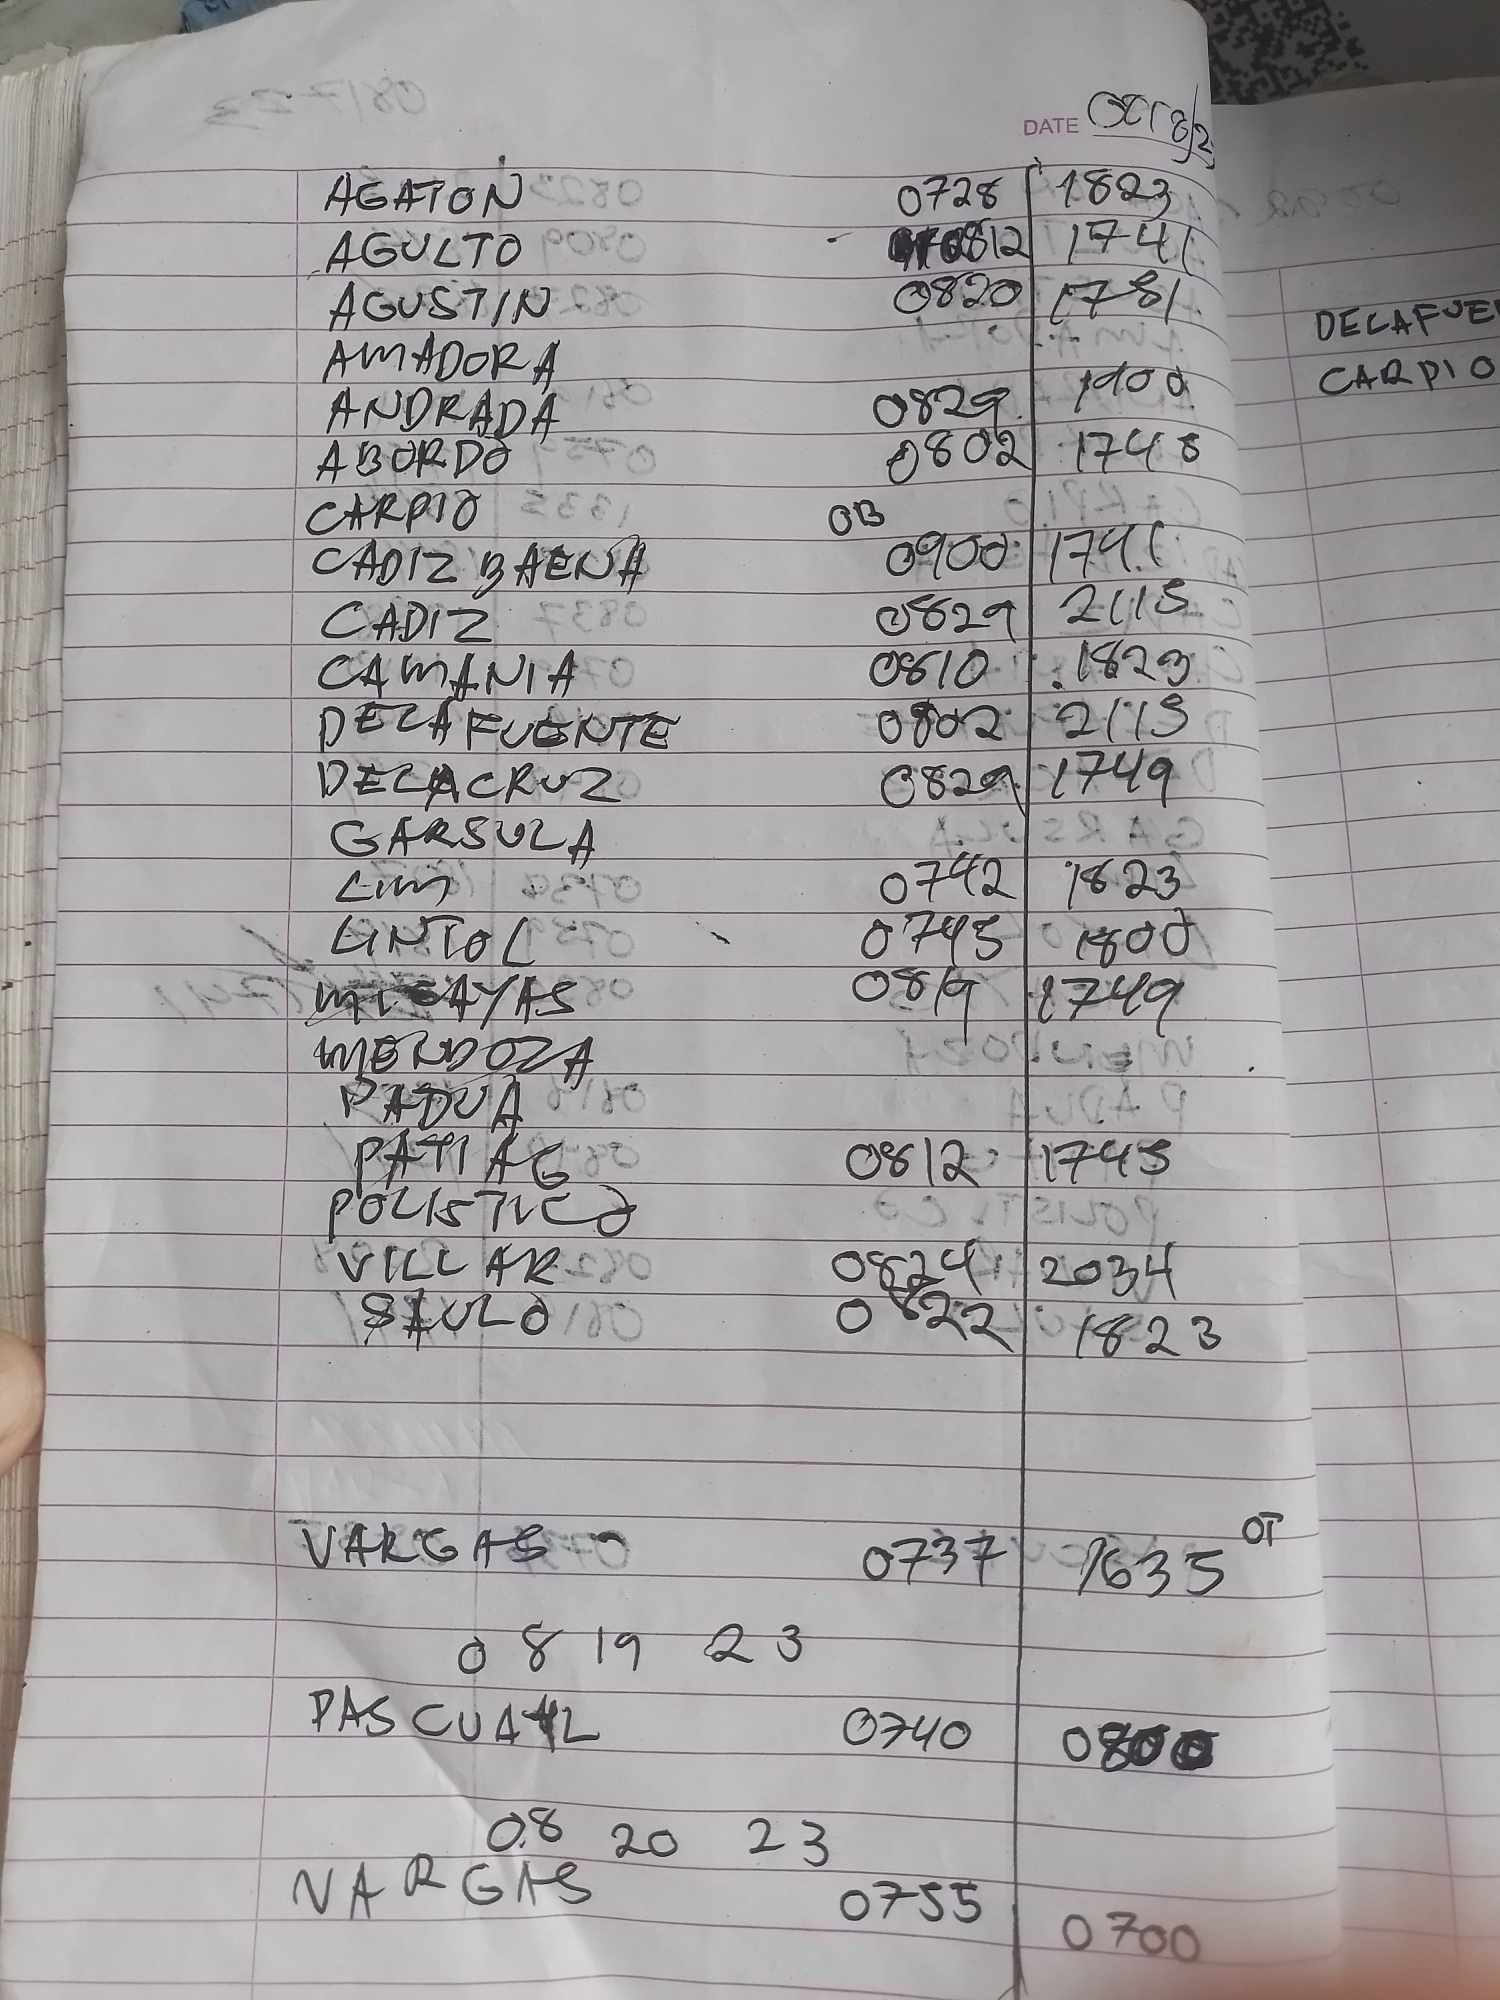 DATE
AGATON 0728 1823
AGULTO 0812 1741
AGUSTIN 0820 1751
AMADORA
ANDRADA 0829 1900
ABORDO 0802 1748
CARPIO OB
CADIZ BAENA 0900 1741
CADIZ 0829 2115
CAMANIA 0810 1823
DELAFUENTE 0802 2115
DELACRUZ 0829 1749
GARSULA
LIM 0742 1823
LINTOL 0745 1800
0819 1749
MENDOZA
PADUA
PATIAG 0812 1745
POLISTICO
VILLAR 0824 2034
SAULO 0822 1823
VARGAS 0737 1635 OT
08 19 23
PASCUAL 0740 0800
08 20 23
VARGAS 0755 0700
DELAFUE
CARPIO